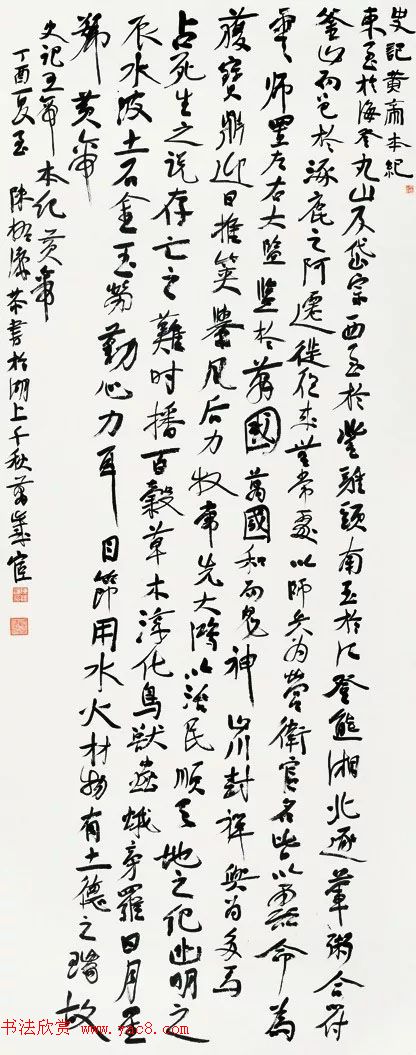 史記黃帝本紀
東至於海登丸山及岱宗西至於登雞頭南至於江登熊湘北逐葷粥合符
釜山而邑於涿鹿之阿遷徙往來無常處以師兵為營衛官名皆以雲命為
雲師置左右大監監於萬國萬國和而鬼神山川封禪與為多焉
獲寶鼎迎日推筴舉風后力牧常先大鴻以治民順天地之紀幽明之
占死生之說存亡之難時播百穀草木淳化鳥獸蟲蛾旁羅日月星
辰水波土石金玉勞勤心力耳目節用水火材物有土德之瑞故
號黃帝
史記五帝本紀黃帝
丁酉夏至 陳振濂恭書於湖上千秋萬歲宧
书法欣赏 www.yac8.com